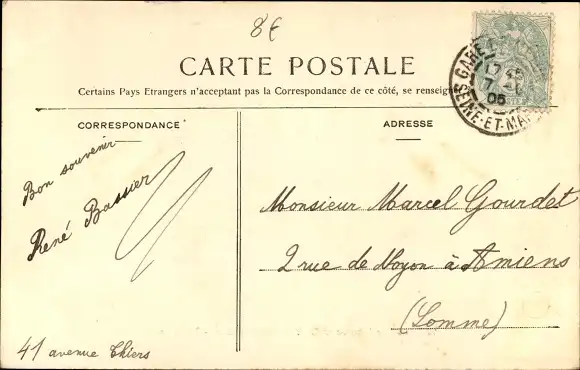 8€
CARTE POSTALE
Certains Pays Etrangers n'acceptant pas la Correspondance de ce côté, se renseigne
CORRESPONDANCE
ADRESSE
GARE
17
7
05
SEINE-ET-MA
Bon souvenir
René Bassier
41 avenue Thiers
Monsieur Marcel Gourdet
2 rue de Noyon à Amiens
(Somme)